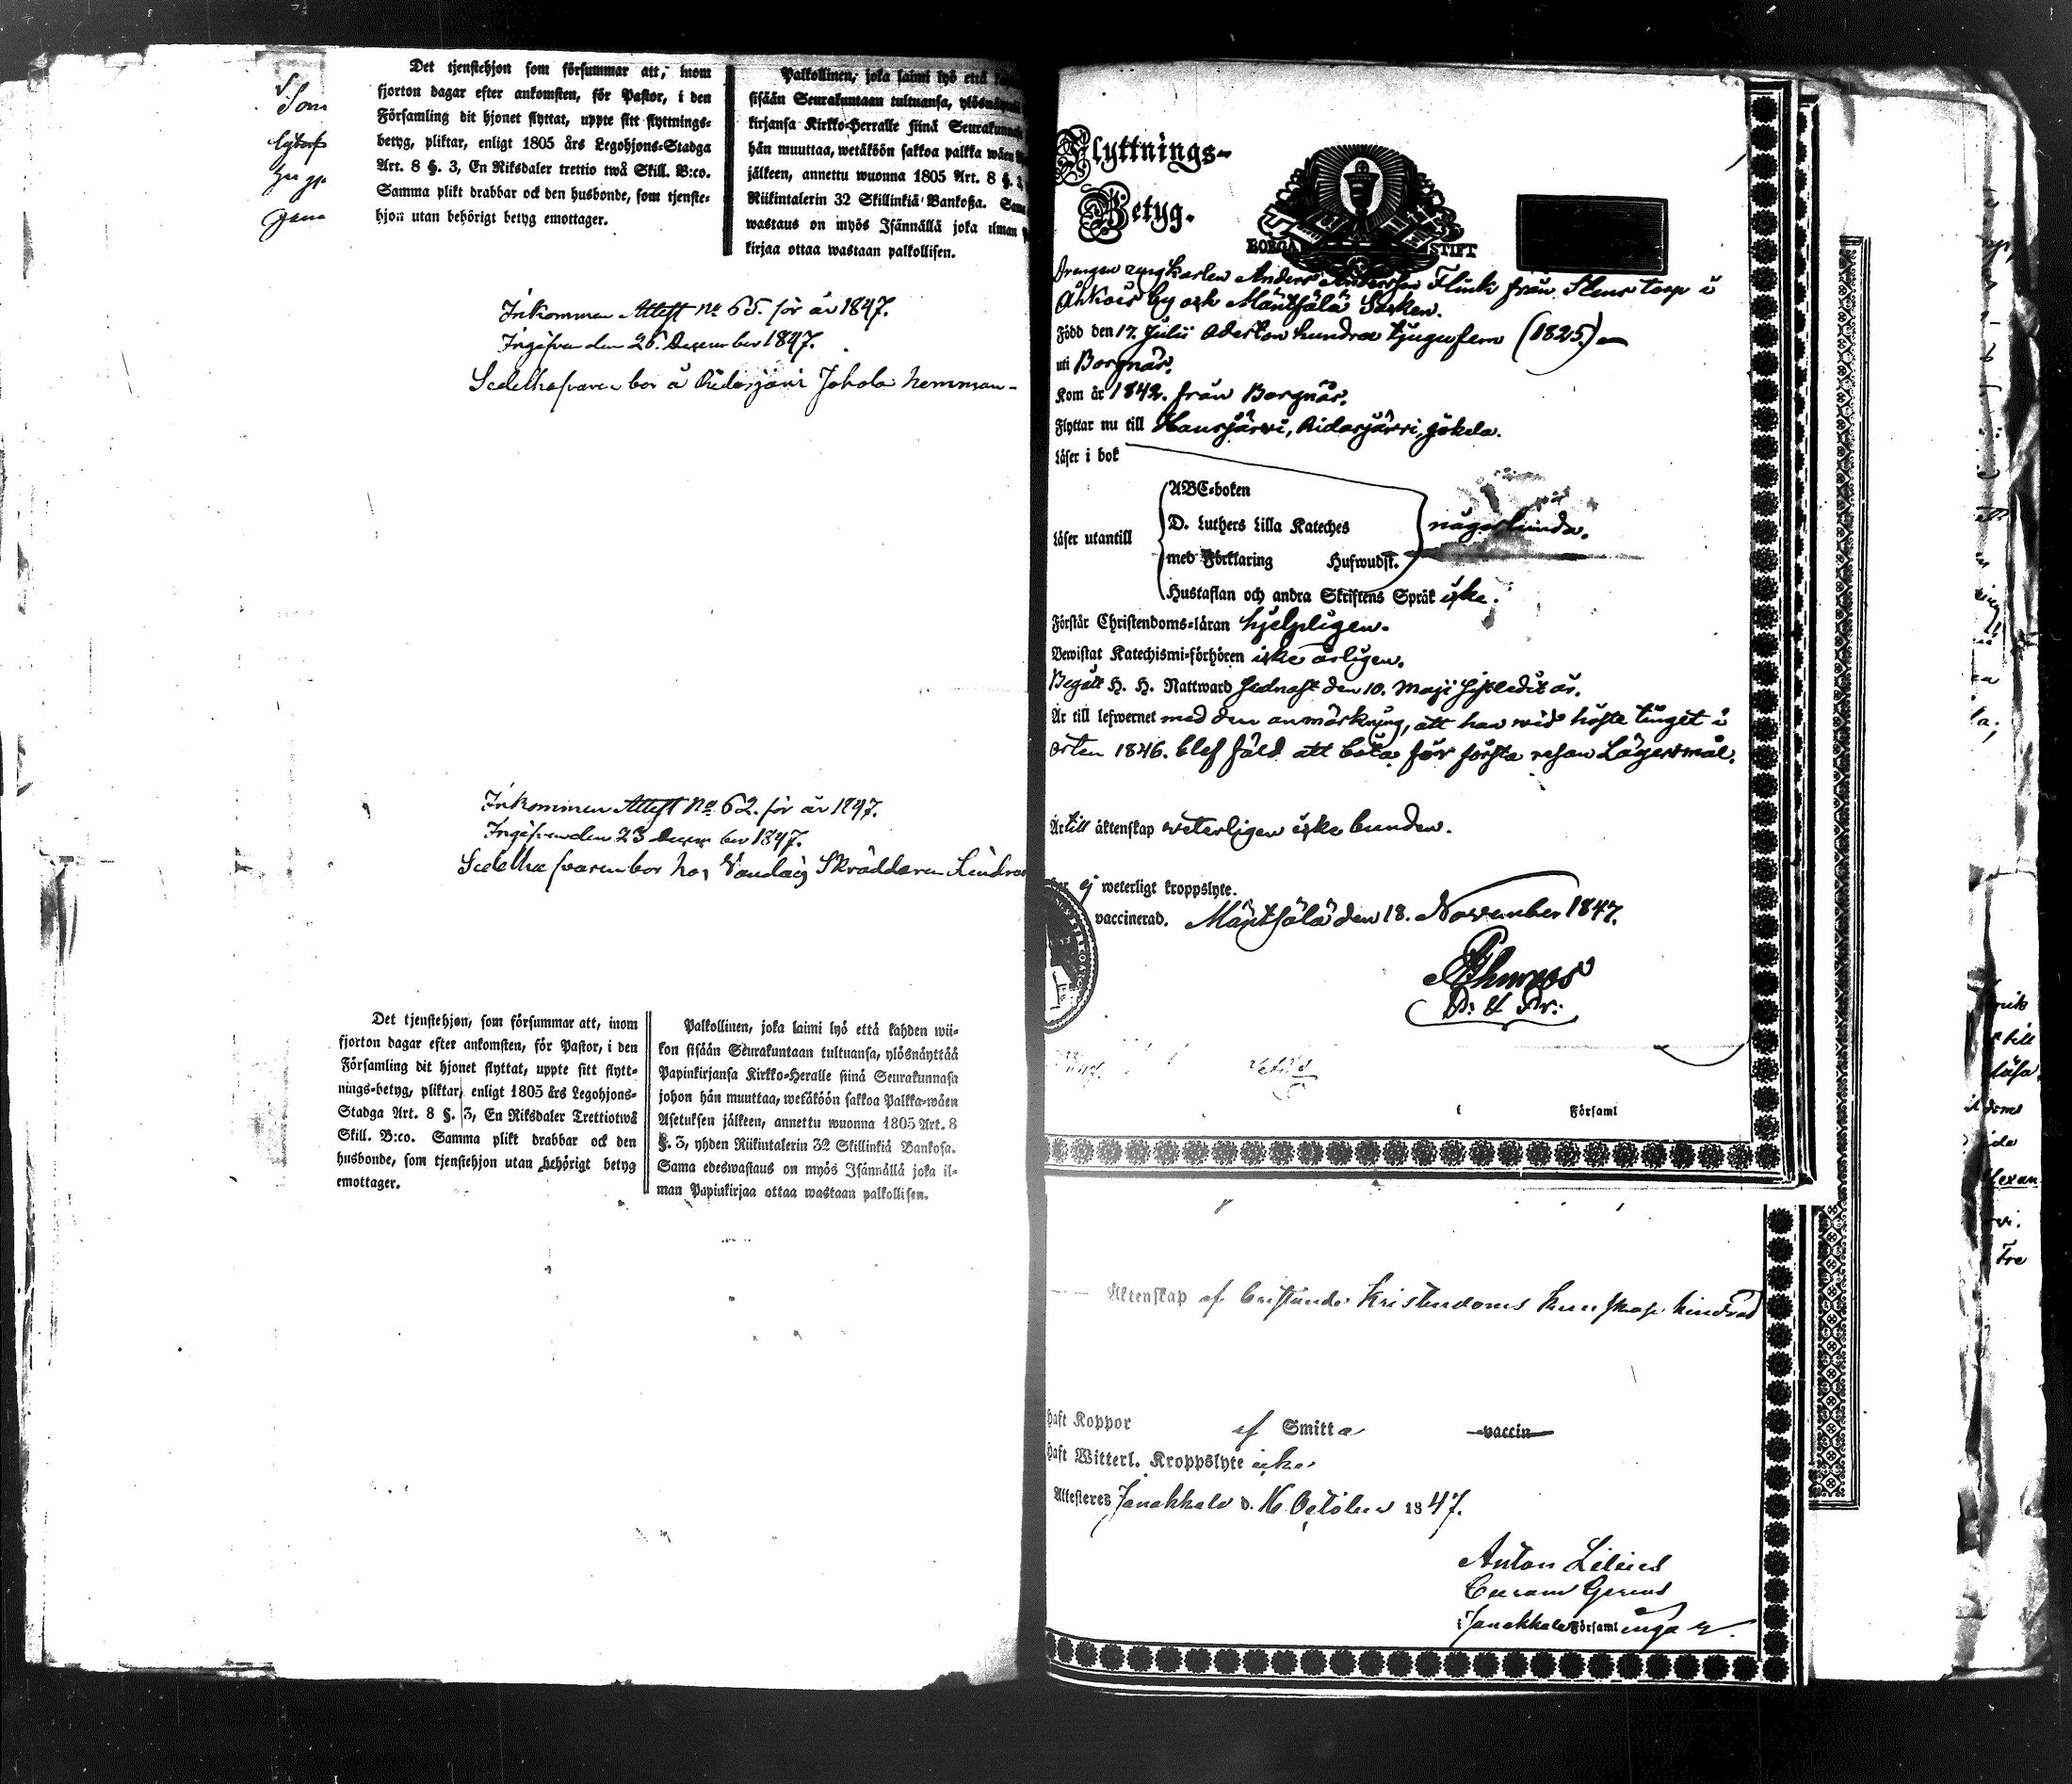 Som
Det tjenstehjon som försummar att, inom
fjorton dagar efter ankomsten, för Pastor, i den
Församling dit hjonet flyttat, uppte sitt flyttnings-
betyg, pliktar, enligt 1805 års Legohjons-Stadga
Art. 8 §. 3, En Riksdaler trettio twå Skill. B:co.
Samma plikt drabbar ock den husbonde, som tjenste-
hjon utan behörigt betyg emottager.
Palkollinen, joka laimi lyö että
sisään Seurakuntaan tultuansa,
kirjansa Kirkko-Herralle siinä
hän muuttaa, wetäköön sakkoa palkka wäen
jälkeen, annettu wuonna 1805 Art. 8 §. 3,
Riikintalerin 32 Skillinkiä Bankoßa.
wastaus on myös Isännällä joka ilman
kirjaa ottaa wastaan palkollisen.
Inkommen Attest No 65. för år 1847.
Ingifven den 26. December 1847.
Sedelhafvaren bor å Ridasjärvi Jokela hemman-
Inkommen Attest No 62. för år 1847.
Ingifven den 23 December 1847.
Sedelhafvaren bor hos Skräddaren
Det tjenstehjon, som försummar att, inom
fjorton dagar efter ankomsten, för Pastor, i den
Församling dit hjonet flyttat, uppte sitt flytt-
nings-betyg, pliktar, enligt 1805 års Legohjons-
Stadga Art. 8 §. 3, En Riksdaler Trettiotwå
Skill. B:co. Samma plikt drabbar ock den
husbonde, som tjenstehjon utan behörigt betyg
emottager.
Palkollinen, joka laimi lyö että kahden wii-
kon sisään Seurakuntaan tultuansa, ylösnäyttää
Papinkirjansa Kirkko-Heralle siinä Seurakunnasa
johon hän muuttaa, wetäköön sakkoa Palkka-wäen
Asetuksen jälkeen, annettu wuonna 1805 Art. 8
§. 3, yhden Riikintalerin 32 Skillinkiä Bankosa.
Sama edeswastaus on myös Isännällä joka il-
man Papinkirjaa ottaa wastaan palkollisen.
Flyttnings-
Betyg.
BORGÅ STIFT
Drengen ungkarlen Anders Andersson Flink från Stens torp i
by och Mäntsälä Socken.
Född den 17. Julii Aderton hundra tjugufem (1825.)
uti Borgnäs.
Kom år 1842. från Borgnäs.
Flyttar nu till Hausjärvi, Ridasjärvi, Jokela.
Läser i bok
ABC-boken
D. Luthers Lilla Kateches
Läser utantill
med Förklaring Hufwudst.
någorlunda.
Hustaflan och andra Skriftens Språk icke.
Förstår Christendoms-läran hjelpligen.
Bewistat Katechismi-förhören icke årligen.
Begått H. H. Nattward sednast den 10. Maji sistledit år.
Är till lefwernet med den anmärkning, att han wid höste tinget i
orten 1846. blef fäld att böta för första resan Lägersmål.
Är till äktenskap weterligen icke bunden.
ej weterligt kroppslyte.
vaccinerad. Mäntsälä den 18. November 1847.
Församl
Äktenskap af bristande Kristendoms kunskap hindrad
Haft Koppor af Smitta vaccin
Haft Witterl. Kroppslyte icke
Attesteres Janakkala d. 16 October 1847.
Anton Lilius
Curam Gerens
i Janakkala Församl